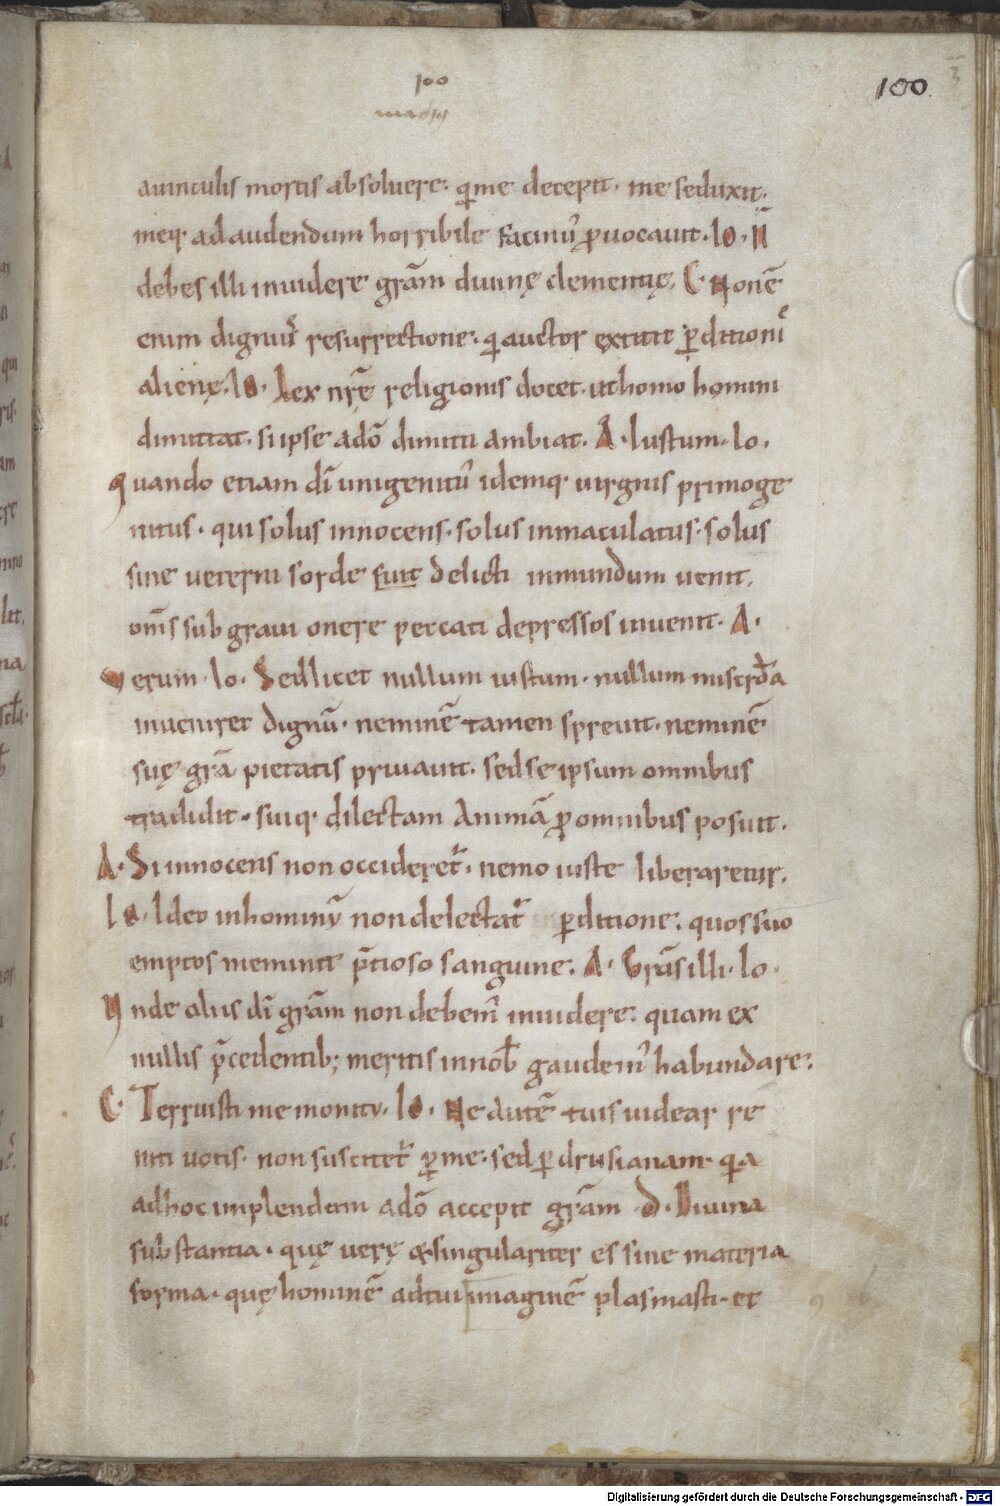 100
100
auinculis mortis absoluere. qi me decepit. me seduxit.
meq; ad audendum horribile facinus ꝓuocauit. Io. N̄
debes illi inuidere grām diuinę clementię. C. Nonē
enim dignus resurrectione. qi auctor extitit ꝑditionis
alienę. Io. Lex nr̄ę religionis docet. ut homo homini
dimittat. si ipse a dō dimitti ambiat. A. Iustum. Io.
Quando etiam dī unigenitus idemq; uirginis primoge
nitus. qui solus innocens. solus inmaculatus. solus
sine ueterni sorde fuit delicti inmundum uenit.
om̄s sub graui onere peccati depressos inuenit. A.
Verum. Io. Sed licet nullum iustum. nullum miscd̄a
inueniret dignū. neminē tamen spreuit. neminē
suę grā pietatis priuauit. sed se ipsum omnibus
tradidit. suiq; dilectam Animā ꝓ omnibus posuit.
A. Si innocens non occideret̄. nemo iuste liberaretur.
Io. Ideo in hominū non delectat̄ ꝑditione. quos suo
emptos meminit p̄tioso sanguine. A. Grās illi. Io.
Vnde aliis dī grām non debem' inuidere. quam ex
nullis p̄cedentib; meritis in nob̄ gaudem' habundare.
C. Terruisti me monitu. Io. Ne autē tuis uidear re
niti uotis. non suscitet̄ ꝑ me. sed ꝑ drusianam. qia
ad hoc implendum a dō accepit grām. D. Diuina
substantia. quę uerę & singulariter es sine materia
forma. quę hominē ad tui imaginē plasmasti. et
Digitalisierung gefördert durch die Deutsche Forschungsgemeinschaft - DFG